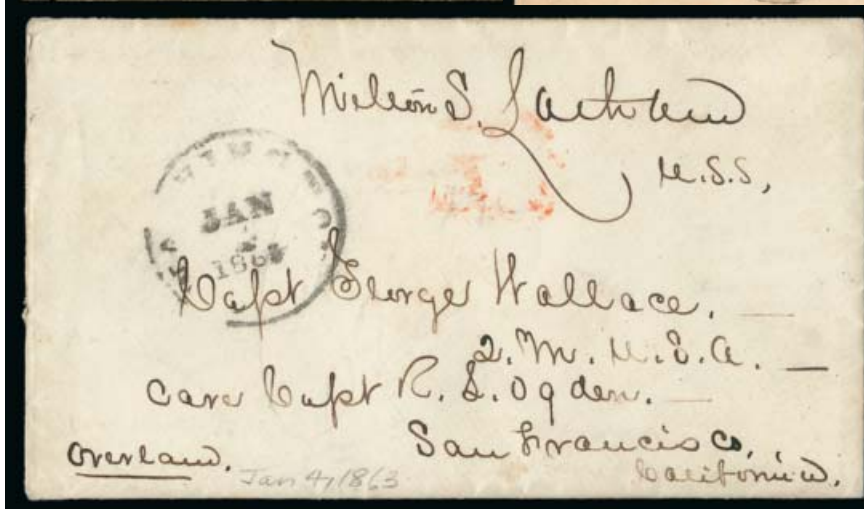 Milton S. Latham
U.S.S,
WASHINGTON
JAN
4
1863
Capt George Wallace.
Q. M. U.S.A.
Care Capt R. L. Ogden.
San Francisco,
California.
Overland.
Jan 4, 1863